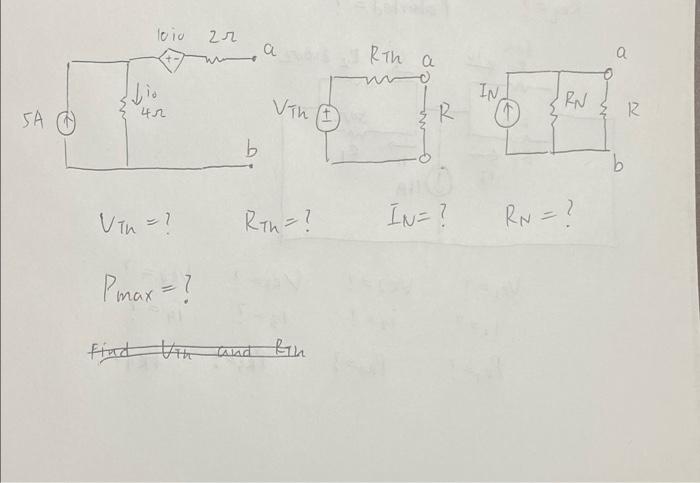 10io 2Ω a
+ -
5A ↑ ↓io 4Ω
b
RTh a
VTh ± R
a
IN ↑ RN R
b
VTh = ? RTh = ? IN = ? RN = ?
Pmax = ?
Find VTh and RTh